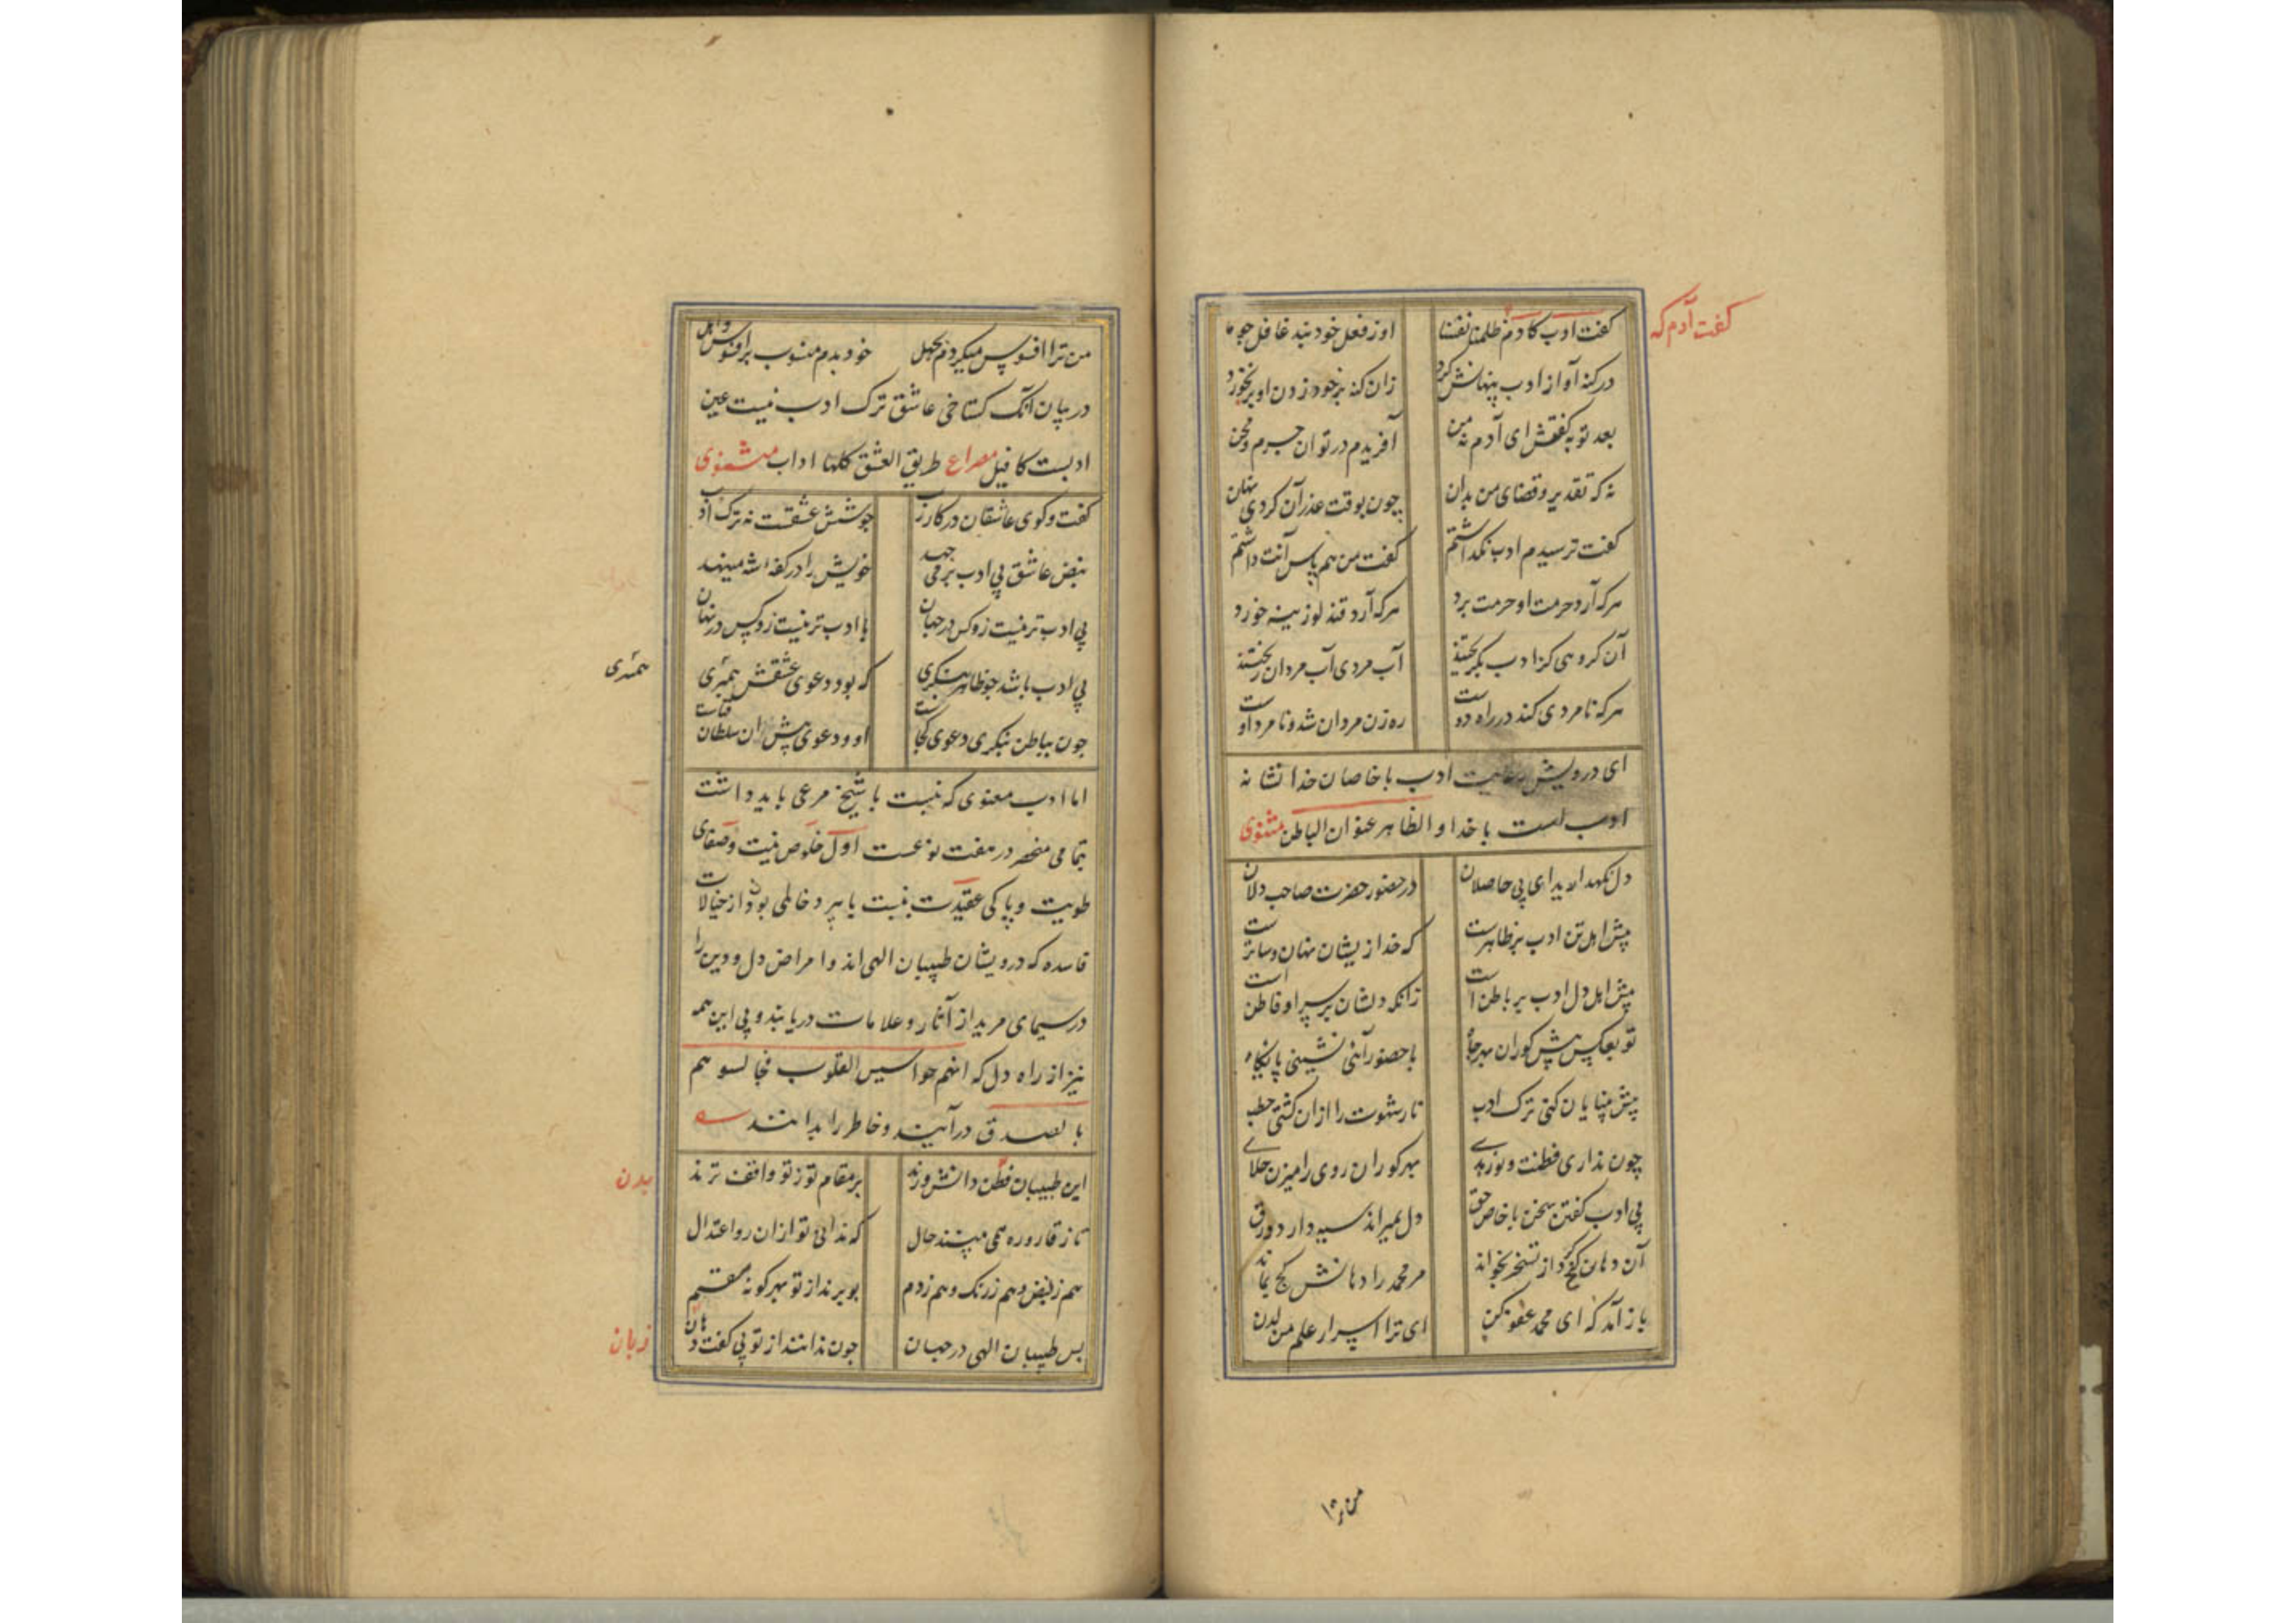 گفت آدم که
گفت ادب کادم ظلمنا نفسنا او ز فعل خود نبد غافل چو ما
در گنه آواز ادب پنهانش کرد زان گنه بر خود زدن او بر بخورد
بعد توبه گفتش ای آدم نه من آفریدم در تو آن جرم و محن
نه که تقدیر و قضای من بدان چون بوقت عذر آن کردی نهان
گفت ترسیدم ادب نگذاشتم گفت من هم پاس آنت داشتم
هر که آرد حرمت او حرمت برد هر که آرد قند لوزینه خورد
آن گروهی کز ادب بگریختند آب مردی آب مردان ریختند
هر که نامردی کند در راه دوست ره زن مردان شد و نامرد اوست
ای درویش رعایت ادب با خاصان خدا نشانه
ادب است با خدا و الظاهر عنوان الباطن مثنوی
دل نگهدارید ای بی حاصلان در حضور حضرت صاحب دلان
پیش اهل تن ادب بر ظاهرست که خدا زیشان نهان و ساترست
پیش اهل دل ادب بر باطن است زانکه دلشان بر سرایر فاطن است
تو بعکس پیش کوران بهر جاه با حضور آئی نشینی پایگاه
پیش بینایان کنی ترک ادب نار شهوت را از آن گشتی حطب
چون نداری فطنت و نور هدی بهر کوران روی را میزن جلا
بی ادب گفتن سخن با خاص حق دل بمیراند سیه دارد ورق
آن دهان کج کرد از تسخر بخواند مر محمد را دهانش کج بماند
باز آمد که ای محمد عفو کن ای ترا اسرار علم من لدن
من ترا
من ترا افسوس میکردم بجهل خود بدم منسوب بر افسوس و اهل
در بیان آنک گستاخی عاشق ترک ادب نیست عین
ادبست کما قیل مصراع طریق العشق کلها اداب مثنوی
گفت و گوی عاشقان در کار رب جوشش عشقست نه ترک ادب
نبض عاشق بی ادب بر می جهد خویش را در کفه شه مینهد
بی ادب تر نیست زو کس در جهان با ادب تر نیست زو کس در نهان
بی ادب باشد چو ظاهر بنگری که بود دعوی عشقش همسری
همسری
چون بباطن بنگری دعوی کجاست او و دعوی پیش آن سلطان فناست
اما ادب معنوی که نسبت با شیخ مرعی باید داشت
تمامی منحصر در هفت نوعست اول خلوص نیت و صفای
طویت و پاکی عقیدت نسبت با پیر و خالی بودن از خیالات
فاسده که درویشان طبیبان الهی اند و امراض دل و دین را
در سیمای مرید از آثار و علامات دریابند و بی این همه
نیز از راه دل که انهم جواسیس القلوب فجالسوهم
بالصدق درآیند و خاطر را بدانند
این طبیبان فطن دانش ورند بر مقام تو ز تو واقف ترند
بدن
تا ز قاروره همی بینند حال که ندانی تو از آن رو اعتدال
هم ز نبض و هم ز رنک و هم ز دم بو برند از تو بهر گونه سقم
پس طبیبان الهی در جهان چون ندانند از تو بی گفت دهان
زبان